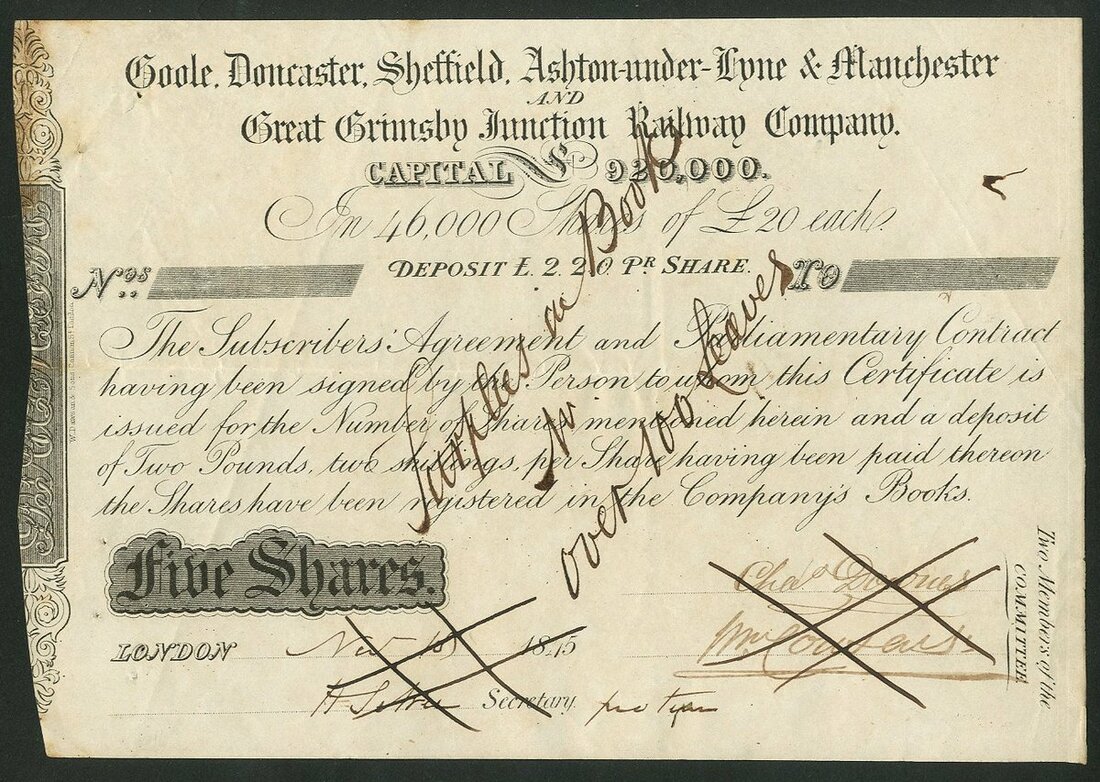 Goole, Doncaster, Sheffield, Ashton-under-Lyne & Manchester
AND
Great Grimsby Junction Railway Company.
CAPITAL £ 920,000.
In 46,000 Shares of £20 each.
Nos.. DEPOSIT £. 2 2 0. PR SHARE. TO
The Subscribers' Agreement and Parliamentary Contract
having been signed by the Person to whom this Certificate is
issued for the Number of Shares mentioned herein and a deposit
of Two Pounds, two shillings, per Share having been paid thereon
the Shares have been registered in the Company's Books.
in Books
over 100 Leaves
Five Shares.
LONDON Nov 1845
Secretary pro tem
Two Members of the
COMMITTEE